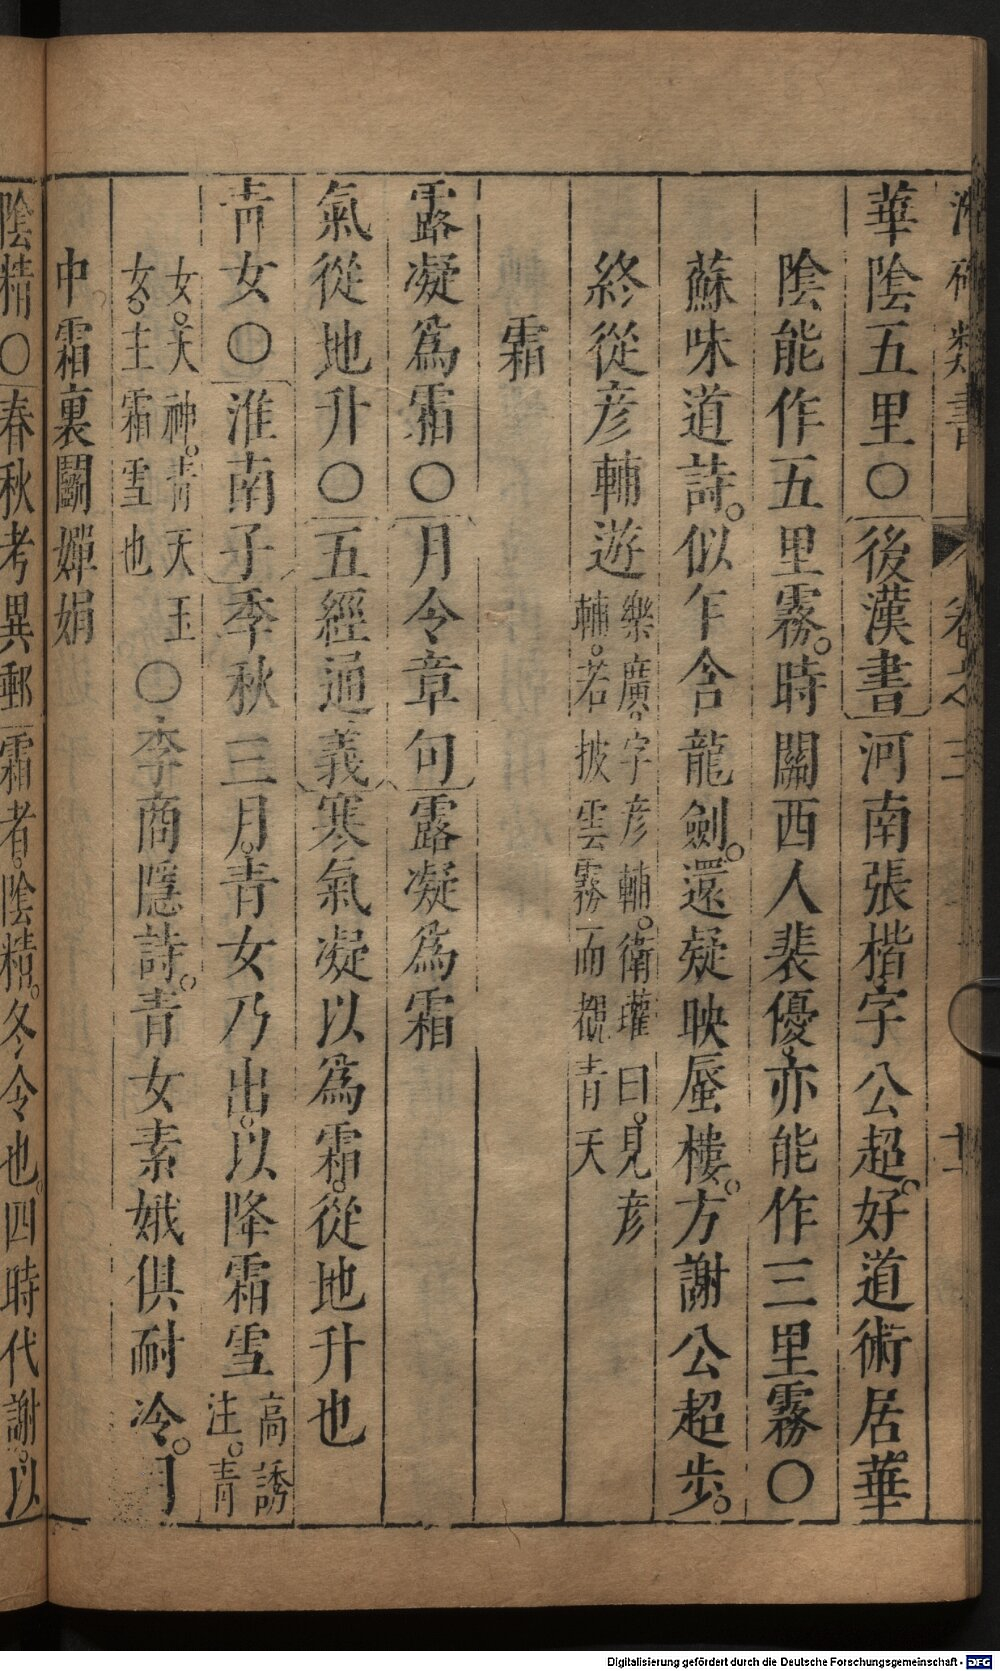 類書 卷之三 十二
華陰五里○後漢書河南張楷字公超好道術居華
陰能作五里霧時關西人裴優亦能作三里霧○
蘇味道詩似乍含龍劍還疑映蜃樓方謝公超步
終從彦輔遊
樂廣字彦輔衛瓘曰見彦
輔若披雲霧而覩青天
霜
露凝爲霜○月令章句露凝爲霜
氣從地升○五經通義寒氣凝以爲霜從地升也
青女○淮南子季秋三月青女乃出以降霜雪
高誘
注青
女天神青天玉
女主霜雪也
○李商隱詩青女素娥俱耐冷月
中霜裏鬭嬋娟
陰精○春秋考異郵霜者陰精冬令也四時代謝以
Digitalisierung gefördert durch die Deutsche Forschungsgemeinschaft - DFG